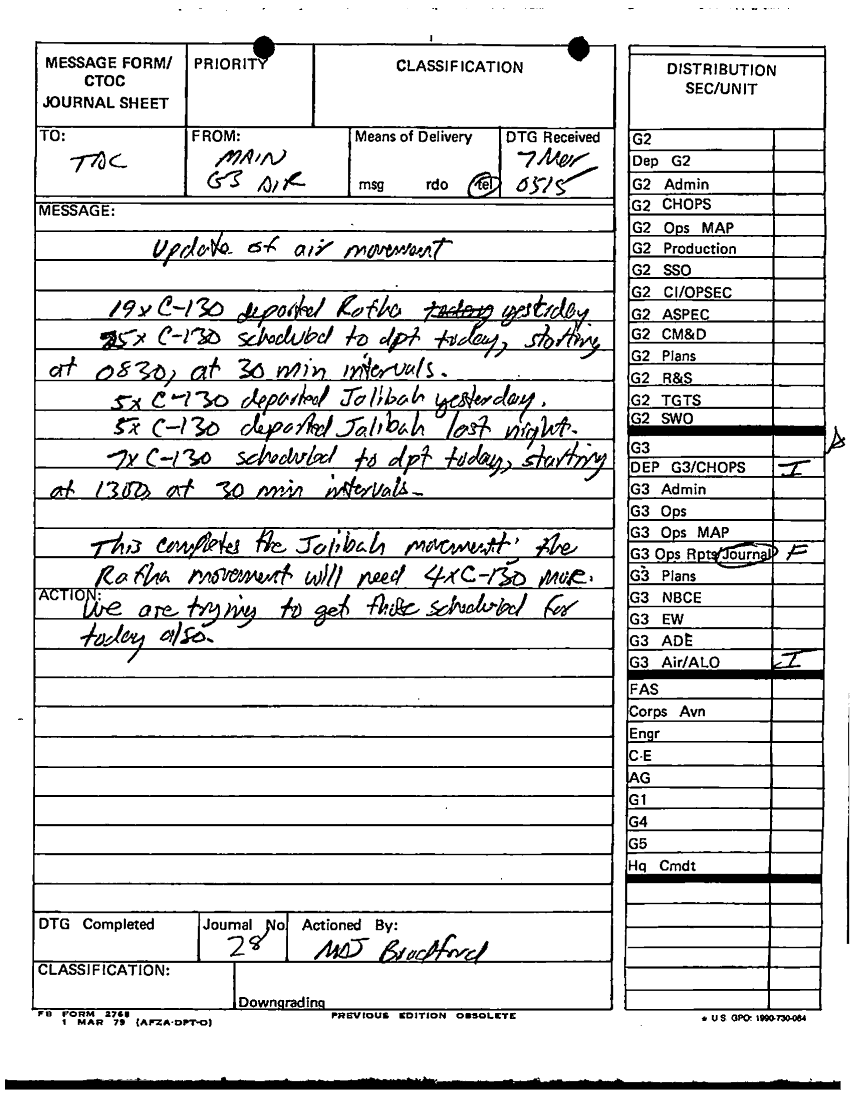 MESSAGE FORM/
CTOC
JOURNAL SHEET
PRIORITY
CLASSIFICATION
TO:
TAC
FROM:
MAIN
G3 AIR
Means of Delivery
msg rdo tel
DTG Received
7 Mar
0515
MESSAGE:
Update of air movement
19x C-130 departed Rafha today yesterday
25x C-130 scheduled to dpt today, starting
at 0830, at 30 min intervals.
5x C-130 departed Jalibah yesterday.
5x C-130 departed Jalibah last night.
7x C-130 scheduled to dpt today, starting
at 1300, at 30 min intervals.
This completes the Jalibah movement; the
Rafha movement will need 4xC-130 more.
ACTION:
We are trying to get those scheduled for
today also.
DTG Completed
Journal No.
28
Actioned By:
MAJ Bradford
CLASSIFICATION:
Downgrading
FB FORM 2768
1 MAR 79 (AFZA-DPT-O)
PREVIOUS EDITION OBSOLETE
DISTRIBUTION
SEC/UNIT
G2
Dep G2
G2 Admin
G2 CHOPS
G2 Ops MAP
G2 Production
G2 SSO
G2 CI/OPSEC
G2 ASPEC
G2 CM&D
G2 Plans
G2 R&S
G2 TGTS
G2 SWO
G3
DEP G3/CHOPS I
G3 Admin
G3 Ops
G3 Ops MAP
G3 Ops Rpts/Journal F
G3 Plans
G3 NBCE
G3 EW
G3 ADE
G3 Air/ALO I
FAS
Corps Avn
Engr
C-E
AG
G1
G4
G5
Hq Cmdt
* U S GPO: 1990-730-084